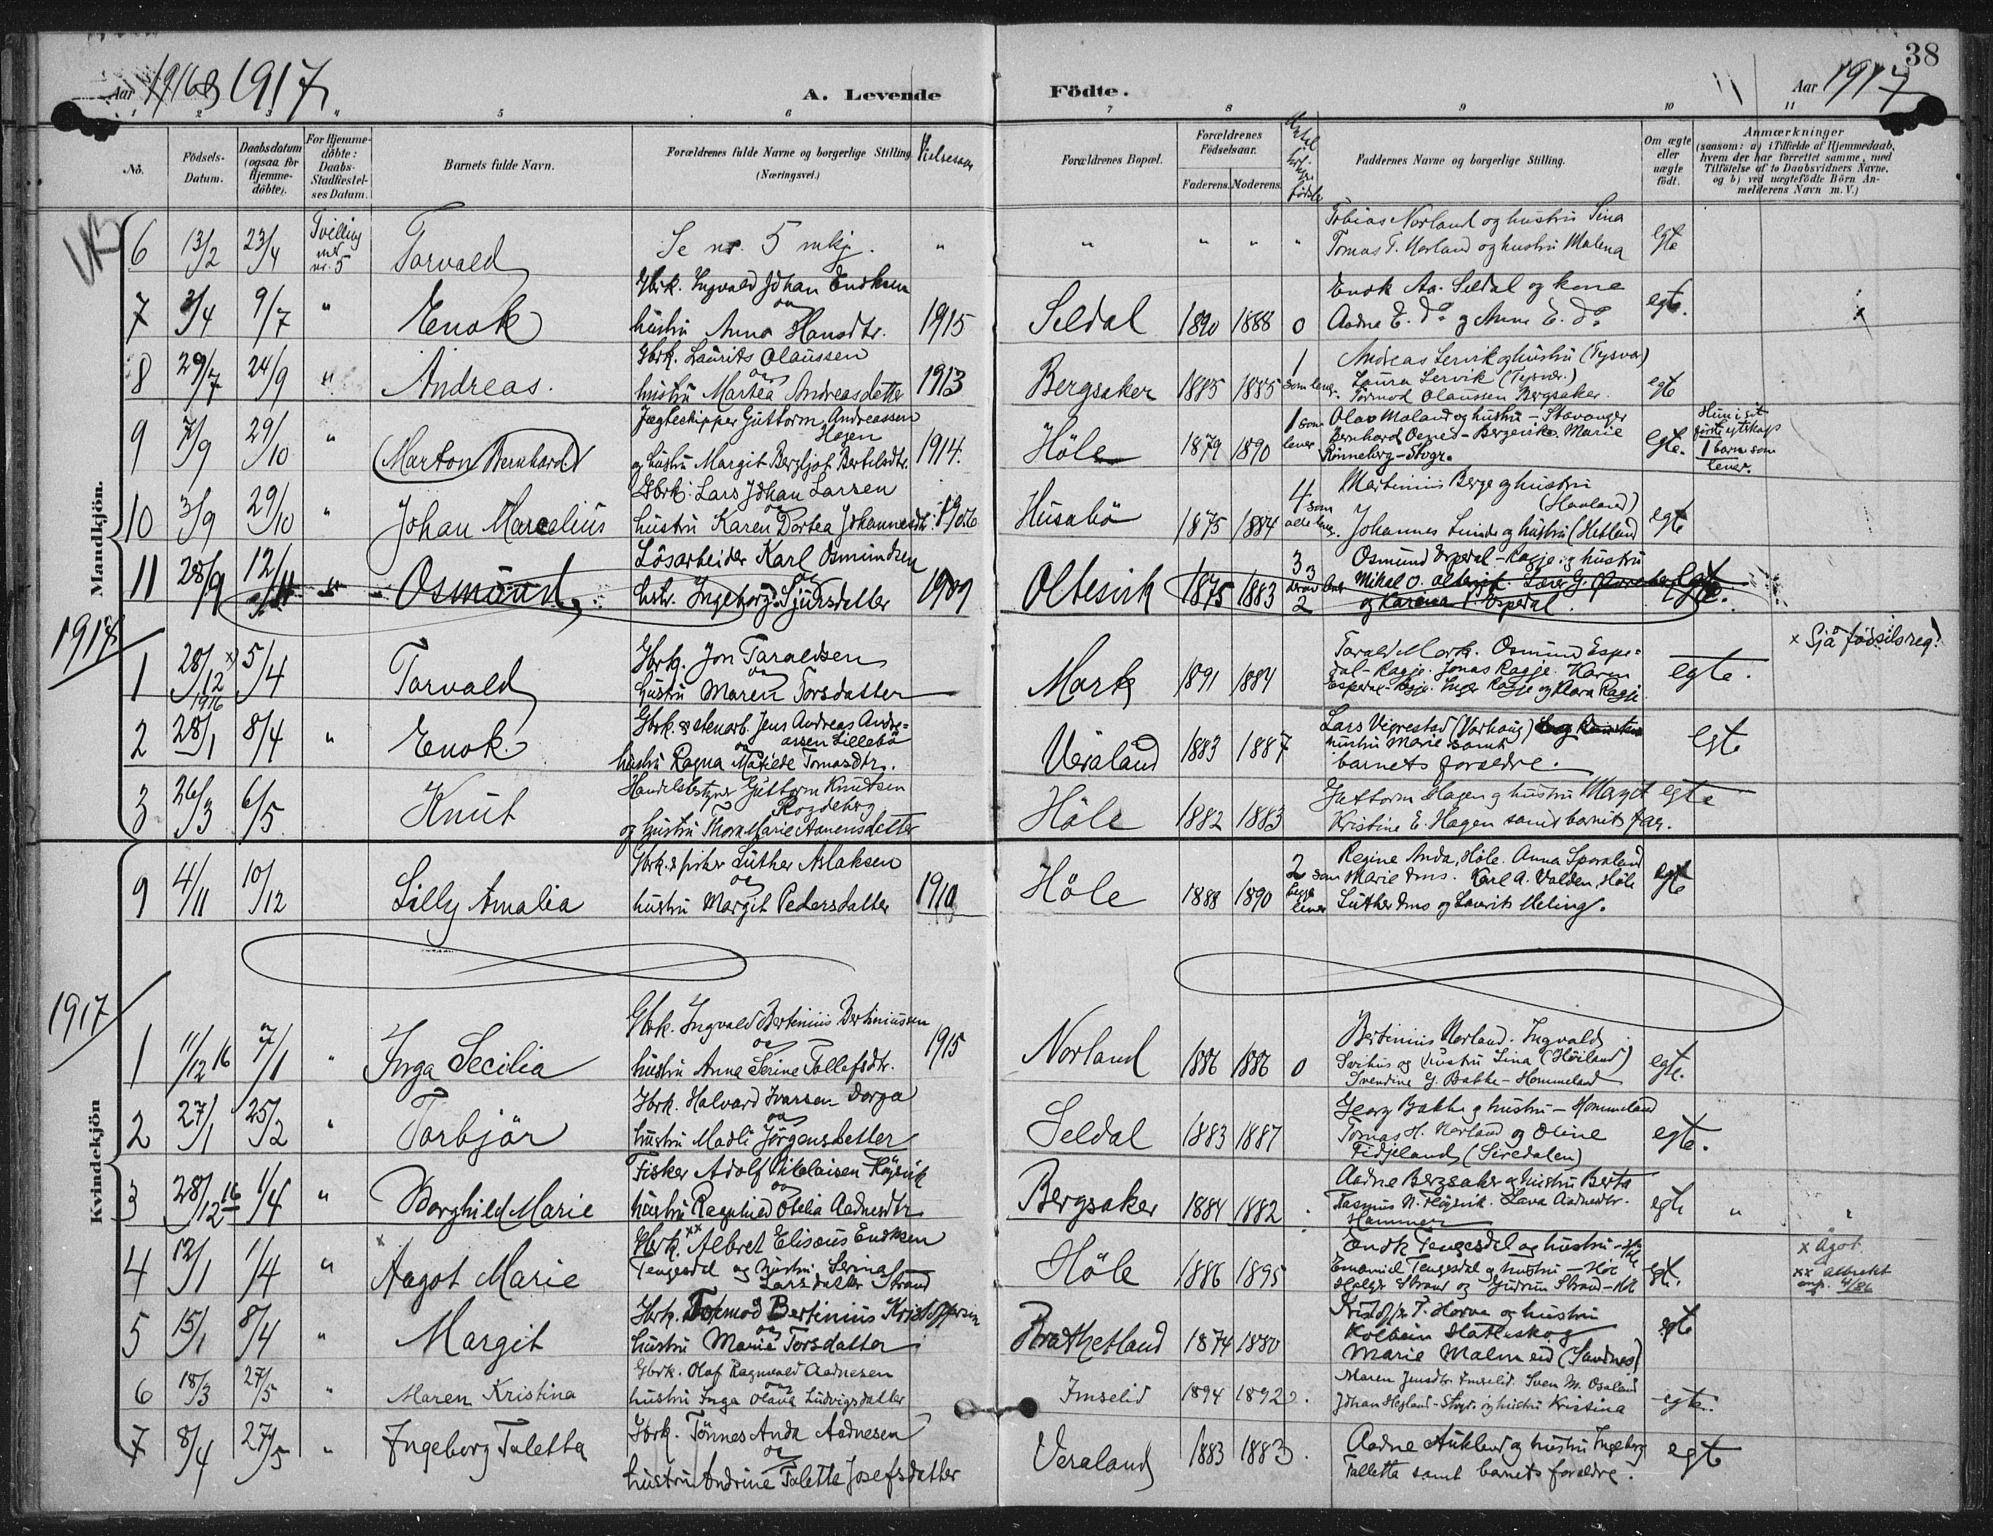 38
Aar 1916 og 1917
A. Levende Födte.
Aar 1917
1 2 3 4 5 6 7 8 9 10 11
No.
Födsels-Datum.
Daabsdatum (ogsaa for Hjemme-döbte).
For Hjemme-döbte: Daabs-Stadfæstel-ses Datum.
Barnets fulde Navn.
Forældrenes fulde Navne og borgerlige Stilling (Næringsvei.)
Vielsesaar
Forældrenes Bopæl.
Forældrenes Födselsaar.
Faderens. Moderens.
Faddernes Navne og borgerlige Stilling.
Om ægte eller uægte födt.
Anmærkninger
(saasom: a) i Tilfælde af Hjemmedaab, hvem der har forrettet samme, med Tilföielse af to Daabsvidners Navne, og b) ved uægtefödte Börn An-melderens Navn m. V.)
Mandkjön.
6 13/2 23/4 Tvilling med nr. 5 Torvald Se nr. 5 mkj. " " " " " Tobias Norland og hustru Sina
Tomas T. Norland og hustru Malena egte
7 3/4 9/7 " Enok Gbrk. Ingvald Johan Enoksen og
hustru Anna Hansdtr. 1915 Seldal 1890 1888 0 Enok Aa. Seldal og kone
Aadne E. do og Anne E. do egte.
8 29/7 24/9 " Andreas. Gbrk. Laurits Olaussen og
hustru Martea Andreasdatter 1913 Bergsaker 1885 1885 1 som lever. Andreas Lervik og hustru (Tysvær)
Laura Lervik (Tysvær.)
Tormod Olaussen Bergsaker egte
9 7/9 29/10 " Marton Bernhard Jægteskipper Guttorm Andreassen Hagen
og hustru Margit Bergljot Bertelsdtr. 1914. Höle 1879 1890 1 som lever Olav Maland og hustru – Stavanger
Bernhard – Marie
Rönneberg – Stvgr. egte. Hun i sit første egtskap 1 barn som lever.
10 3/9 29/10 " Johan Marcelius Gbrk. Lars Johan Larsen og
hustru Karen Dortea Johannesdtr. 1906 Husabö 1875 1884 4 som alle lever. Martinius Berge og hustru
Johannes og hustru (Hetland) egte
11 28/9 12/11 " Osmund Lösarbeider Karl Osmundsen og
hstr. Ingeborg Sjursdatter 1909 Oltesvik 1875 1883 3 Osmund Espedal – Ragje og hustru
Mikal O. Oltesvik.
og Karina Espedal. egte.
1917
1 28/12 1916 x) 5/4 Torvald Gbrk. Jon Taraldsen og
hustru Maren Torsdatter Mork 1891 1884 Torald Mork. Osmund Espe=
dal – Ragje. Jonas Ragje. Karen
Espedal – Ragje. Inger Ragje og Klara Ragje. egte. x Sjå fødselsreg!
2 28/1 8/4 " Enok. Gbrk. & stenarb. Jens Andreas Andre=
assen Lillebö og
hustru Ragna Matilde Tomasdtr. Veraland 1883 1887 Lars Vigrestad (Varhaug) og
hustru Marie samt
barnets forældre. egte
3 26/3 6/5 Knut Handelsbestyrer Guttorm Knudsen Rogdeberg
og hustru Thora Marie Aanensdatter Höle 1882 1883 Guttorm Hagen og hustru Margit
Kristine E. Hagen samt barnets far. egte
Kvindekjön
9 4/11 10/12 Lilly Amalia Gbrk. & fisker Luther Aslaksen og
hustru Margit Pedersdatter 1910 Höle 1888 1890 2 som begge lever Regine Anda, Höle. Anna Sporaland
Marie dms. Karl A. Valden, Höle
Luther dms og Laurits Meling. egte
1917
1 11/12 16 7/1 " Inga Secilia Gbrk. Ingvald Bertinius Bertiniussen og
hustru Anna Serine Tollefsdtr. 1915 Norland 1886 1886 0 Bertinius Norland. Ingvald
og hustru Sina (Höiland)
Svendine G. Bakke – Hommeland egte.
2 27/1 25/2 " Torbjör Gbrk. Halvard Ivarsen Dorga og
hustru Madli Jörgensdatter Seldal 1883 1887 Georg Bakke og hustru – Hommeland
Tomas H. Norland og Oline
Fidjeland (Siredalen) egte.
3 28/12 16 1/4 " Borghild Marie Fisker Adolf Nikolaisen Höjsvik og
hustru Ragnhild Otelia Aadnesdtr Bergsaker 1884 1882 Aadne Bergsaker og hustru Berta
Rasmus N. Höjsvik. Lava Aadnesdtr.
Hammer egte " "
4 12/1 1/4 " x Aagot Marie Gbrk. xx Albret Eliseus Enoksen
Tengesdal og hustru Serina
Larsdatter Strand Höle 1886 1895 Enok Tengesdal og hustru –
Emanuel Tengesdal og hustru – Höle
Holger Strand og Gudrun Strand – Höle egte. x Ågot
xx Albrekt
4/86
5 15/1 8/4 " Margit Gbrk. Tormod Bertinius Kristoffersen og
hustru Marie Torsdatter Brathetland 1874 1880 Kristoffer T. Horve og hustru
Kolbein Hatleskog
Marie Malmeid (Sandnes) egte
6 18/3 27/5 " Maren Kristina Gbrk. Olaf Ragnvald Aadnesen og
hustru Inga Olava Ludvigsdatter Imselid 1894 1892 Maren Jensdtr. Imselid. Sven M. Osaland
Johan Hegland – Stvgr. og hustru Kristina egte.
7 8/4 27/5 " Ingeborg Taletta Gbrk. Tönnes Anda Aadnesen og
hustru Andrine Taletta Josefsdatter Veraland 1883 1883 Aadne Aukland og hustru Ingeborg
Talletta samt barnets foreldre. egte